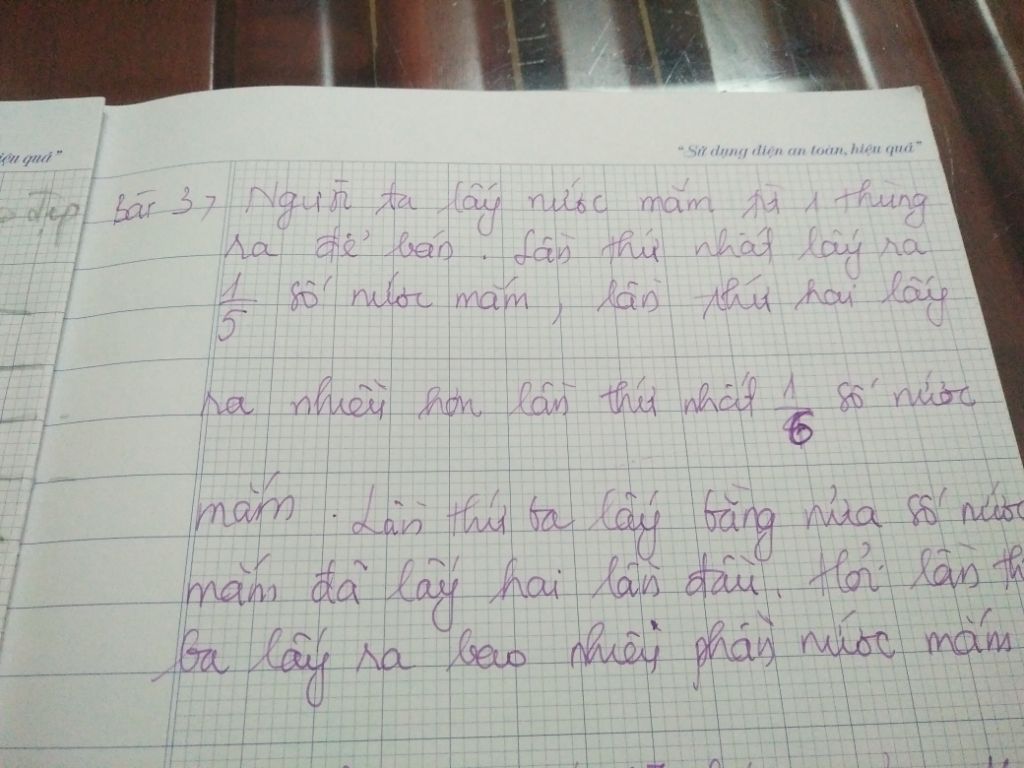 iệu quả"
"Sử dụng điện an toàn, hiệu quả"
đẹp
Bài 3, Người ta lấy nước mắm từ 1 thùng
ra để bán. Lần thứ nhất lấy ra
1/5 số nước mắm, lần thứ hai lấy
ra nhiều hơn lần thứ nhất 1/6 số nước
mắm. Lần thứ ba lấy bằng nửa số nước
mắm đã lấy hai lần đầu. Hỏi lần th
ba lấy ra bao nhiêu phần nước mắm